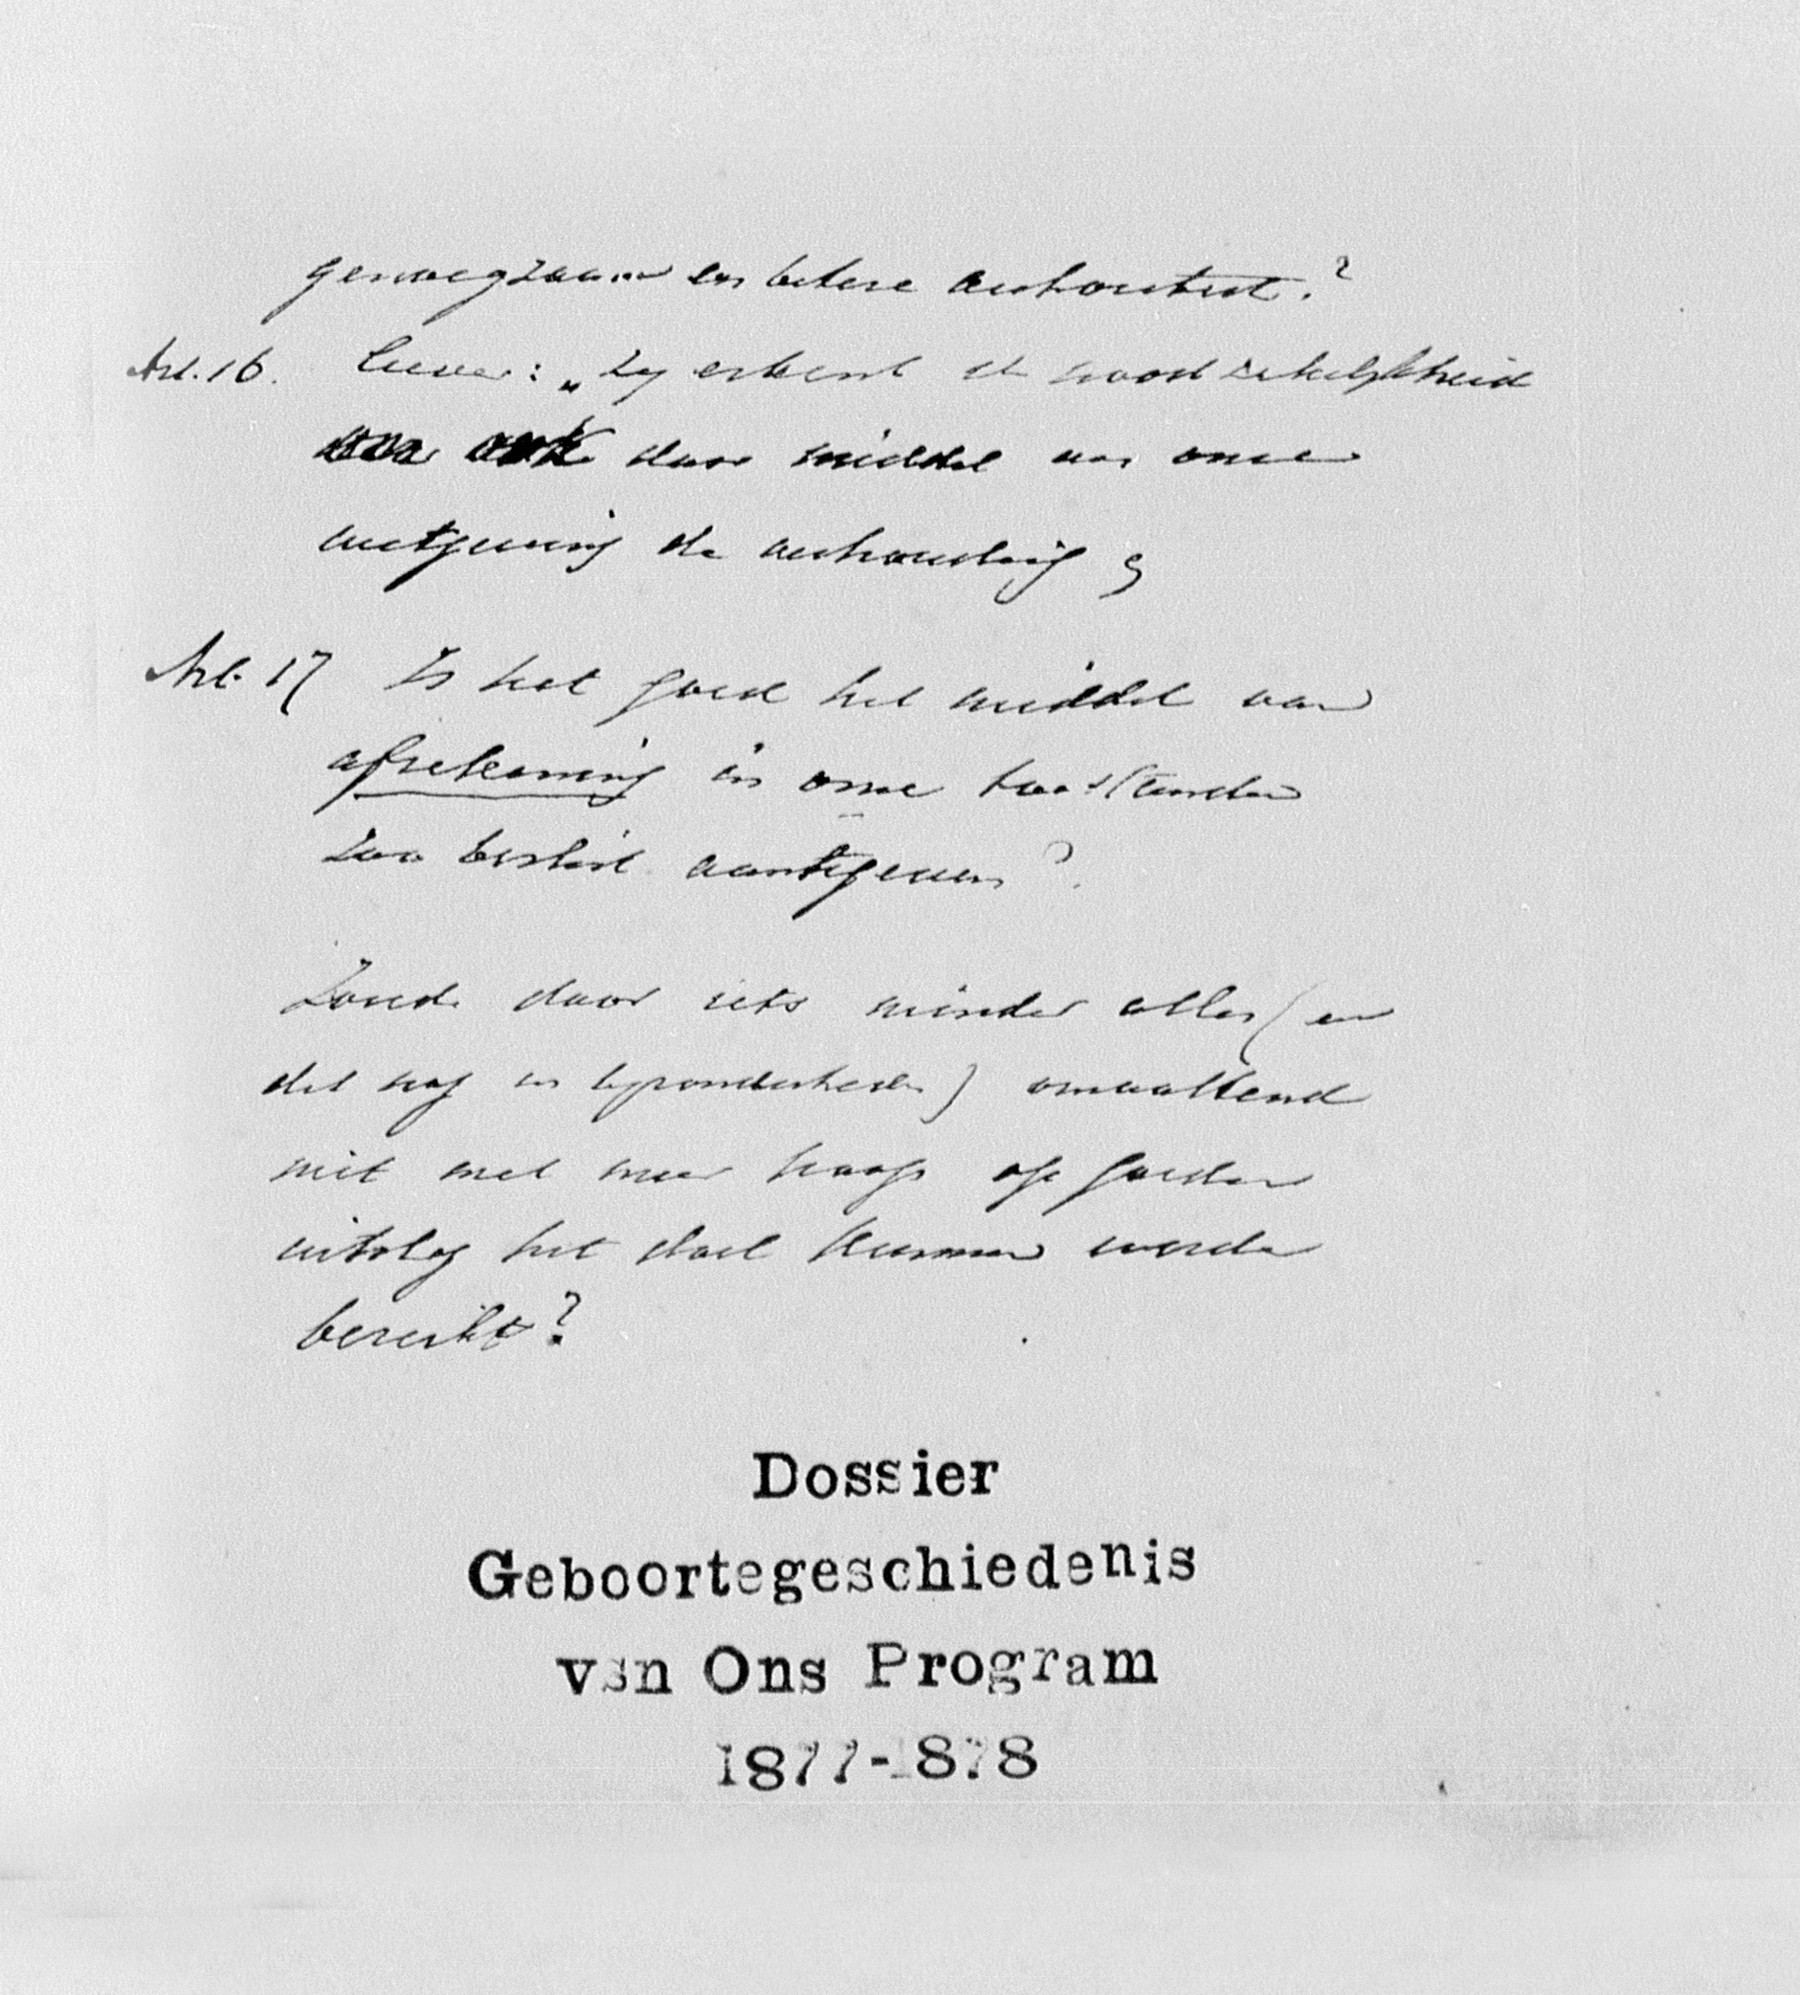 genoegzaam en betere
Art. 16. Liever: „Zij erkent de noodzakelijkheid
om ook door middel van onze
wetgeving de verhouding
Art. 17 Is het goed het middel van
afrekening in onze toestanden
zoo beslist aantegeven?
Zoude door iets minder alles (en
dat nog in bijzonderheden) omvattend
niet met meer hoop op goeden
uitslag het doel kunnen worden
bereikt?
Dossier
Geboortegeschiedenis
van Ons Program
1877-1878